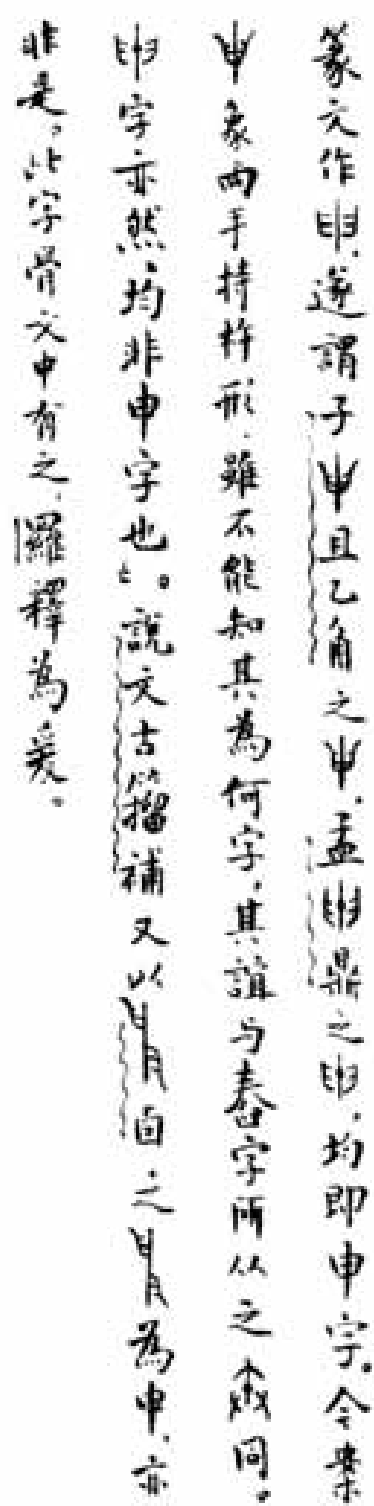 篆文作申，遂謂子申且乙角之申，盂申鼎之申，均即申字。今案
申象兩手持杵形，雖不能知其為何字，其誼与舂字所从之同。
申字亦然，均非申字也。說文古籀補又以卣之為申，亦
非是。此字骨文中有之，羅釋為爰。